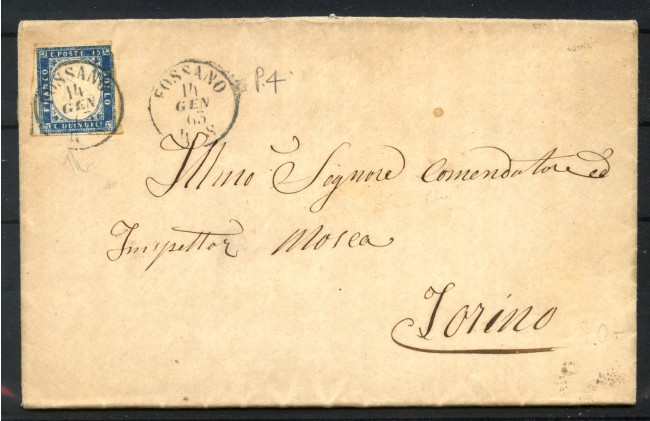 C. POSTE 15
FRANCO
BOLLO
C. QUINDICI
FOSSANO
14
GEN
FOSSANO
14
GEN
63
P.4.
Illmo Signore Comendatore ed
Inspettor Mosca
Torino